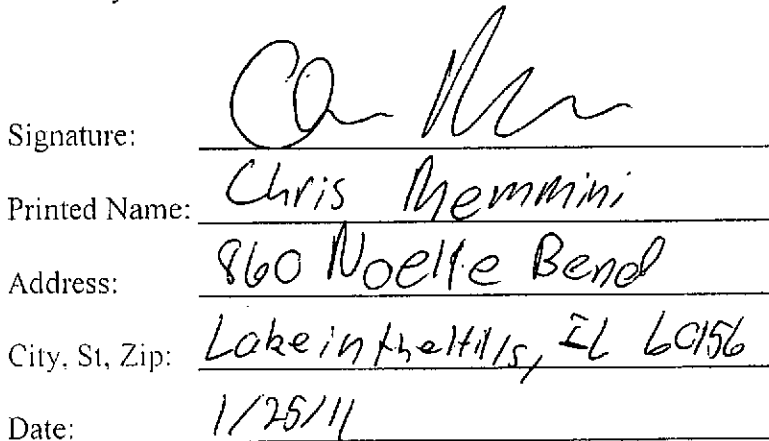 Signature:
Printed Name: Chris Memmini
Address: 860 Noelle Bend
City, St, Zip: Lake in the Hills, IL 60156
Date: 1/25/11